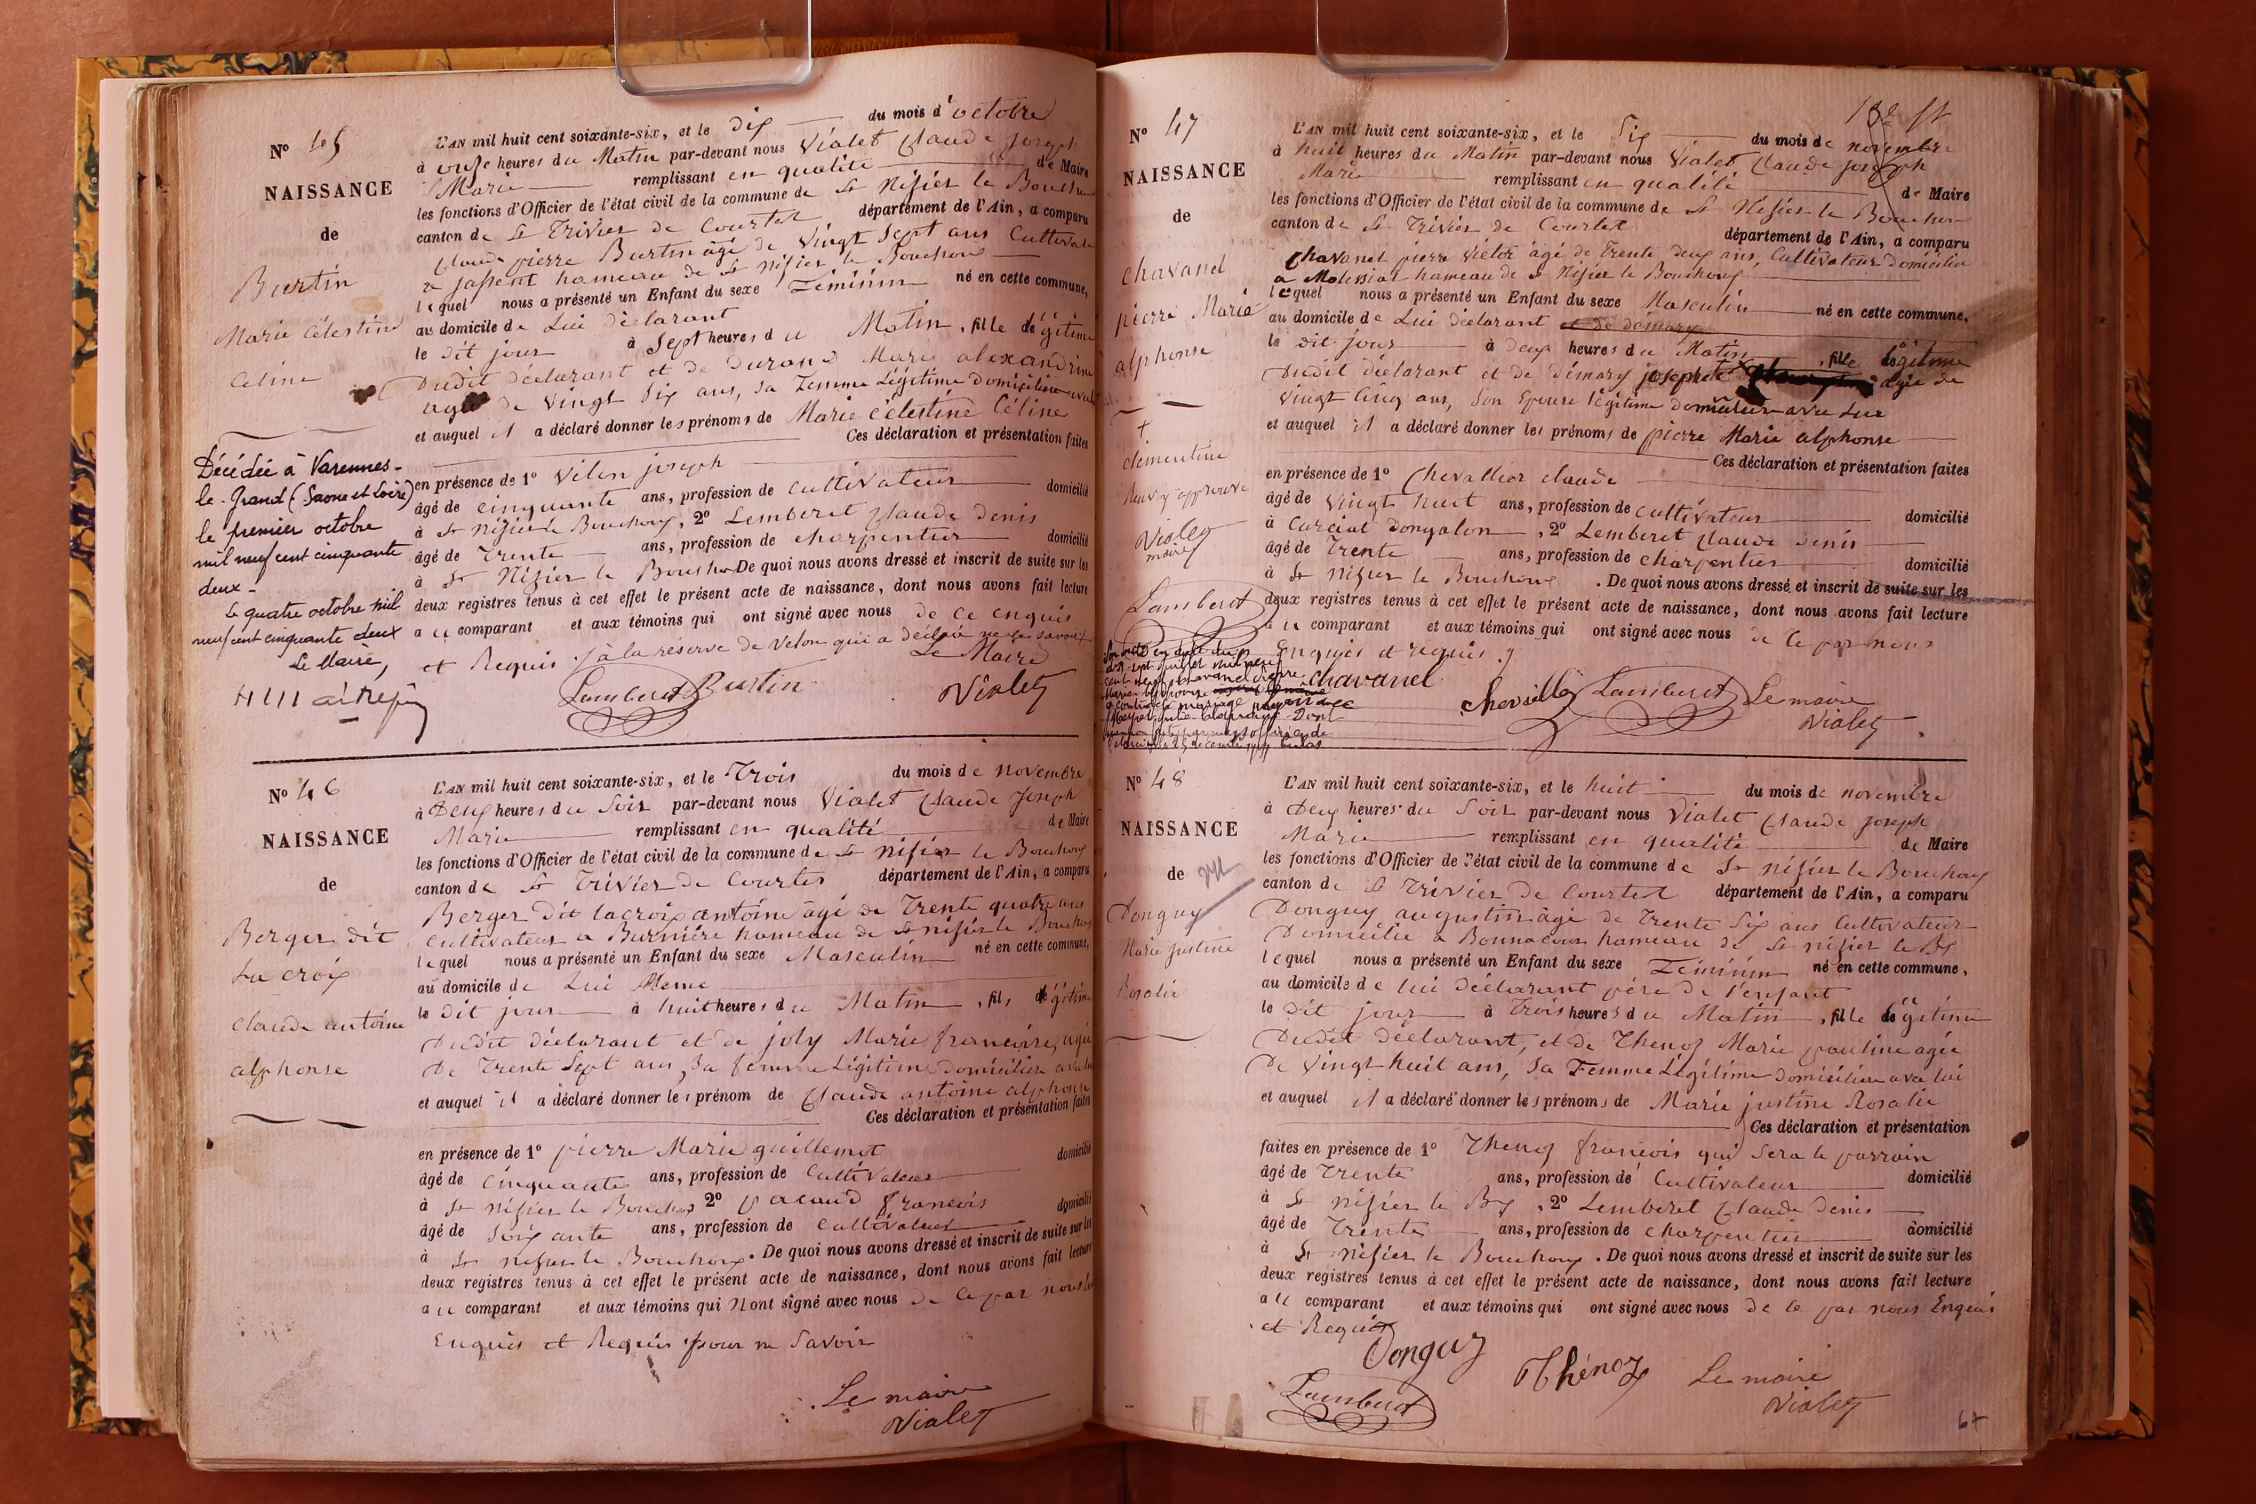 N° 45
NAISSANCE
de
Burtin
Marie Célestine
Céline
Décédée à Varennes-
le-Grand (Saone et Loire)
le premier octobre
mil neuf cent cinquante
deux -
Le quatre octobre mil
neuf cent cinquante deux
Le Maire,
L'AN mil huit cent soixante-six, et le dix du mois d'octobre
à onze heures du Matin par-devant nous Vialet Claude Joseph
Marie remplissant en qualité de Maire
les fonctions d'Officier de l'état civil de la commune de St Nisier le Bouchoux
canton de St Trivier de Courtes département de l'Ain, a comparu
Claude pierre Burtin âgé de vingt sept ans Cultivateur
a jassent hameau de St Nisier le Bouchoux
lequel nous a présenté un Enfant du sexe Féminin né en cette commune,
au domicile de Lui déclarant
le dit jour à Sept heures du Matin, fille légitime
Dudit déclarant et de Durand Marie alexandrine
agée de vingt six ans, sa Femme Légitime domiciliée avec
et auquel il a déclaré donner les prénoms de Marie Célestine Céline
Ces déclaration et présentation faites
en présence de 1° Velon joseph
âgé de cinquante ans, profession de cultivateur domicilié
à St Nisier le Bouchoux, 2° Lemberet Claude Denis
âgé de Trente ans, profession de charpentier domicilié
à St Nisier le Bouchoux De quoi nous avons dressé et inscrit de suite sur les
deux registres tenus à cet effet le présent acte de naissance, dont nous avons fait lecture
au comparant et aux témoins qui ont signé avec nous de ce enquis
et Requis. à la réserve de Velon qui a déclaré ne le savoir
Le Maire
Lamberet Burtin Vialet
N° 46
NAISSANCE
de
Berger dit
La croix
Claude antoine
alphonse
L'AN mil huit cent soixante-six, et le Trois du mois de novembre
à Deux heures du Soir par-devant nous Vialet Claude Joseph
Marie remplissant en qualité de Maire
les fonctions d'Officier de l'état civil de la commune de St Nisier le Bouchoux
canton de St Trivier de Courtes département de l'Ain, a comparu
Berger Dit lacroix antoine âgé de Trente quatre ans
Cultivateur a Burnière hameau de St nisier le Bouchoux
lequel nous a présenté un Enfant du sexe Masculin né en cette commune,
au domicile de Lui Meme
le dit jour à huit heures du Matin, fils légitime
Dudit déclarant et de joly Marie françoise, agée
De Trente Sept ans, sa femme Légitime domiciliée avec lui
et auquel il a déclaré donner les prénom de Claude antoine alphonse
Ces déclaration et présentation faites
en présence de 1° pierre Marie guillemot
âgé de Cinquante ans, profession de Cultivateur domicilié
à St Nisier le Bouchoux 2° françois
âgé de Soixante ans, profession de Cultivateur domicilié
à St nisier le Bouchoux. De quoi nous avons dressé et inscrit de suite sur les
deux registres tenus à cet effet le présent acte de naissance, dont nous avons fait lecture
au comparant et aux témoins qui Nont signé avec nous de ce par nous
Enquis et Requis pour ne Savoir
Le maire
Vialet
N° 47
NAISSANCE
de
Chavanel
pierre Marie
alphonse
+
clementine
approuvé
Vialet
maire
Lamberet
L'AN mil huit cent soixante-six, et le Six du mois de novembre
à huit heures du Matin par-devant nous Vialet Claude joseph
Marie remplissant en qualité de Maire
les fonctions d'Officier de l'état civil de la commune de St Nisier le Bouchoux
canton de St Trivier de Courtes département de l'Ain, a comparu
Chavanel pierre Victor âgé de Trente deux ans, Cultivateur Domicilié
a Molissiat hameau de St Nisier le Bouchoux
lequel nous a présenté un Enfant du sexe Masculin né en cette commune,
au domicile de Lui déclarant et de démary
le dit jour à deux heures du Matin, fille légitime
Dudit déclarant et de démary josephte agée de
Vingt Cinq ans, Son Epouse légitime domiciliée avec Lui
et auquel il a déclaré donner les prénoms de pierre Marie alphonse
Ces déclaration et présentation faites
en présence de 1° Chevallier claude
âgé de vingt huit ans, profession de cultivateur domicilié
à Curciat Dongalon, 2° Lemberet Claude Denis
âgé de Trente ans, profession de charpentier domicilié
à St Nisier le Bouchoux. De quoi nous avons dressé et inscrit de suite sur les
deux registres tenus à cet effet le présent acte de naissance, dont nous avons fait lecture
au comparant et aux témoins qui ont signé avec nous de ce par nous
Enquis et requis.
Chavanel
Lamberet Le maire
Vialet
N° 48
NAISSANCE
de
Donguy
Marie justine
Rosalie
L'AN mil huit cent soixante-six, et le huit du mois de novembre
à Deux heures du Soir par-devant nous Vialet Claude joseph
Marie remplissant en qualité de Maire
les fonctions d'Officier de l'état civil de la commune de St nisier le Bouchoux
canton de St Trivier de Courtes département de l'Ain, a comparu
Donguy augustin âgé de Trente Six ans Cultivateur
Domicilié a Bonnacour hameau de St nisier le Bx
lequel nous a présenté un Enfant du sexe Féminin né en cette commune,
au domicile de lui déclarant père de l'enfant
le dit jour à Trois heures du Matin, fille légitime
Dudit déclarant, et de Thenoz Marie pauline agée
De Vingt huit ans, sa Femme Légitime domiciliée avec lui
et auquel il a déclaré donner les prénoms de Marie justine Rosalie
Ces déclaration et présentation
faites en présence de 1° Thenoz françois qui sera le parrain
âgé de Trente ans, profession de Cultivateur domicilié
à St nisier le Bx, 2° Lemberet Claude Denis
âgé de Trente ans, profession de charpentier domicilié
à St nisier le Bouchoux. De quoi nous avons dressé et inscrit de suite sur les
deux registres tenus à cet effet le présent acte de naissance, dont nous avons fait lecture
au comparant et aux témoins qui ont signé avec nous de ce par nous Enquis
et Requis
Donguy
Thénoz Le maire
Lamberet Vialet
67